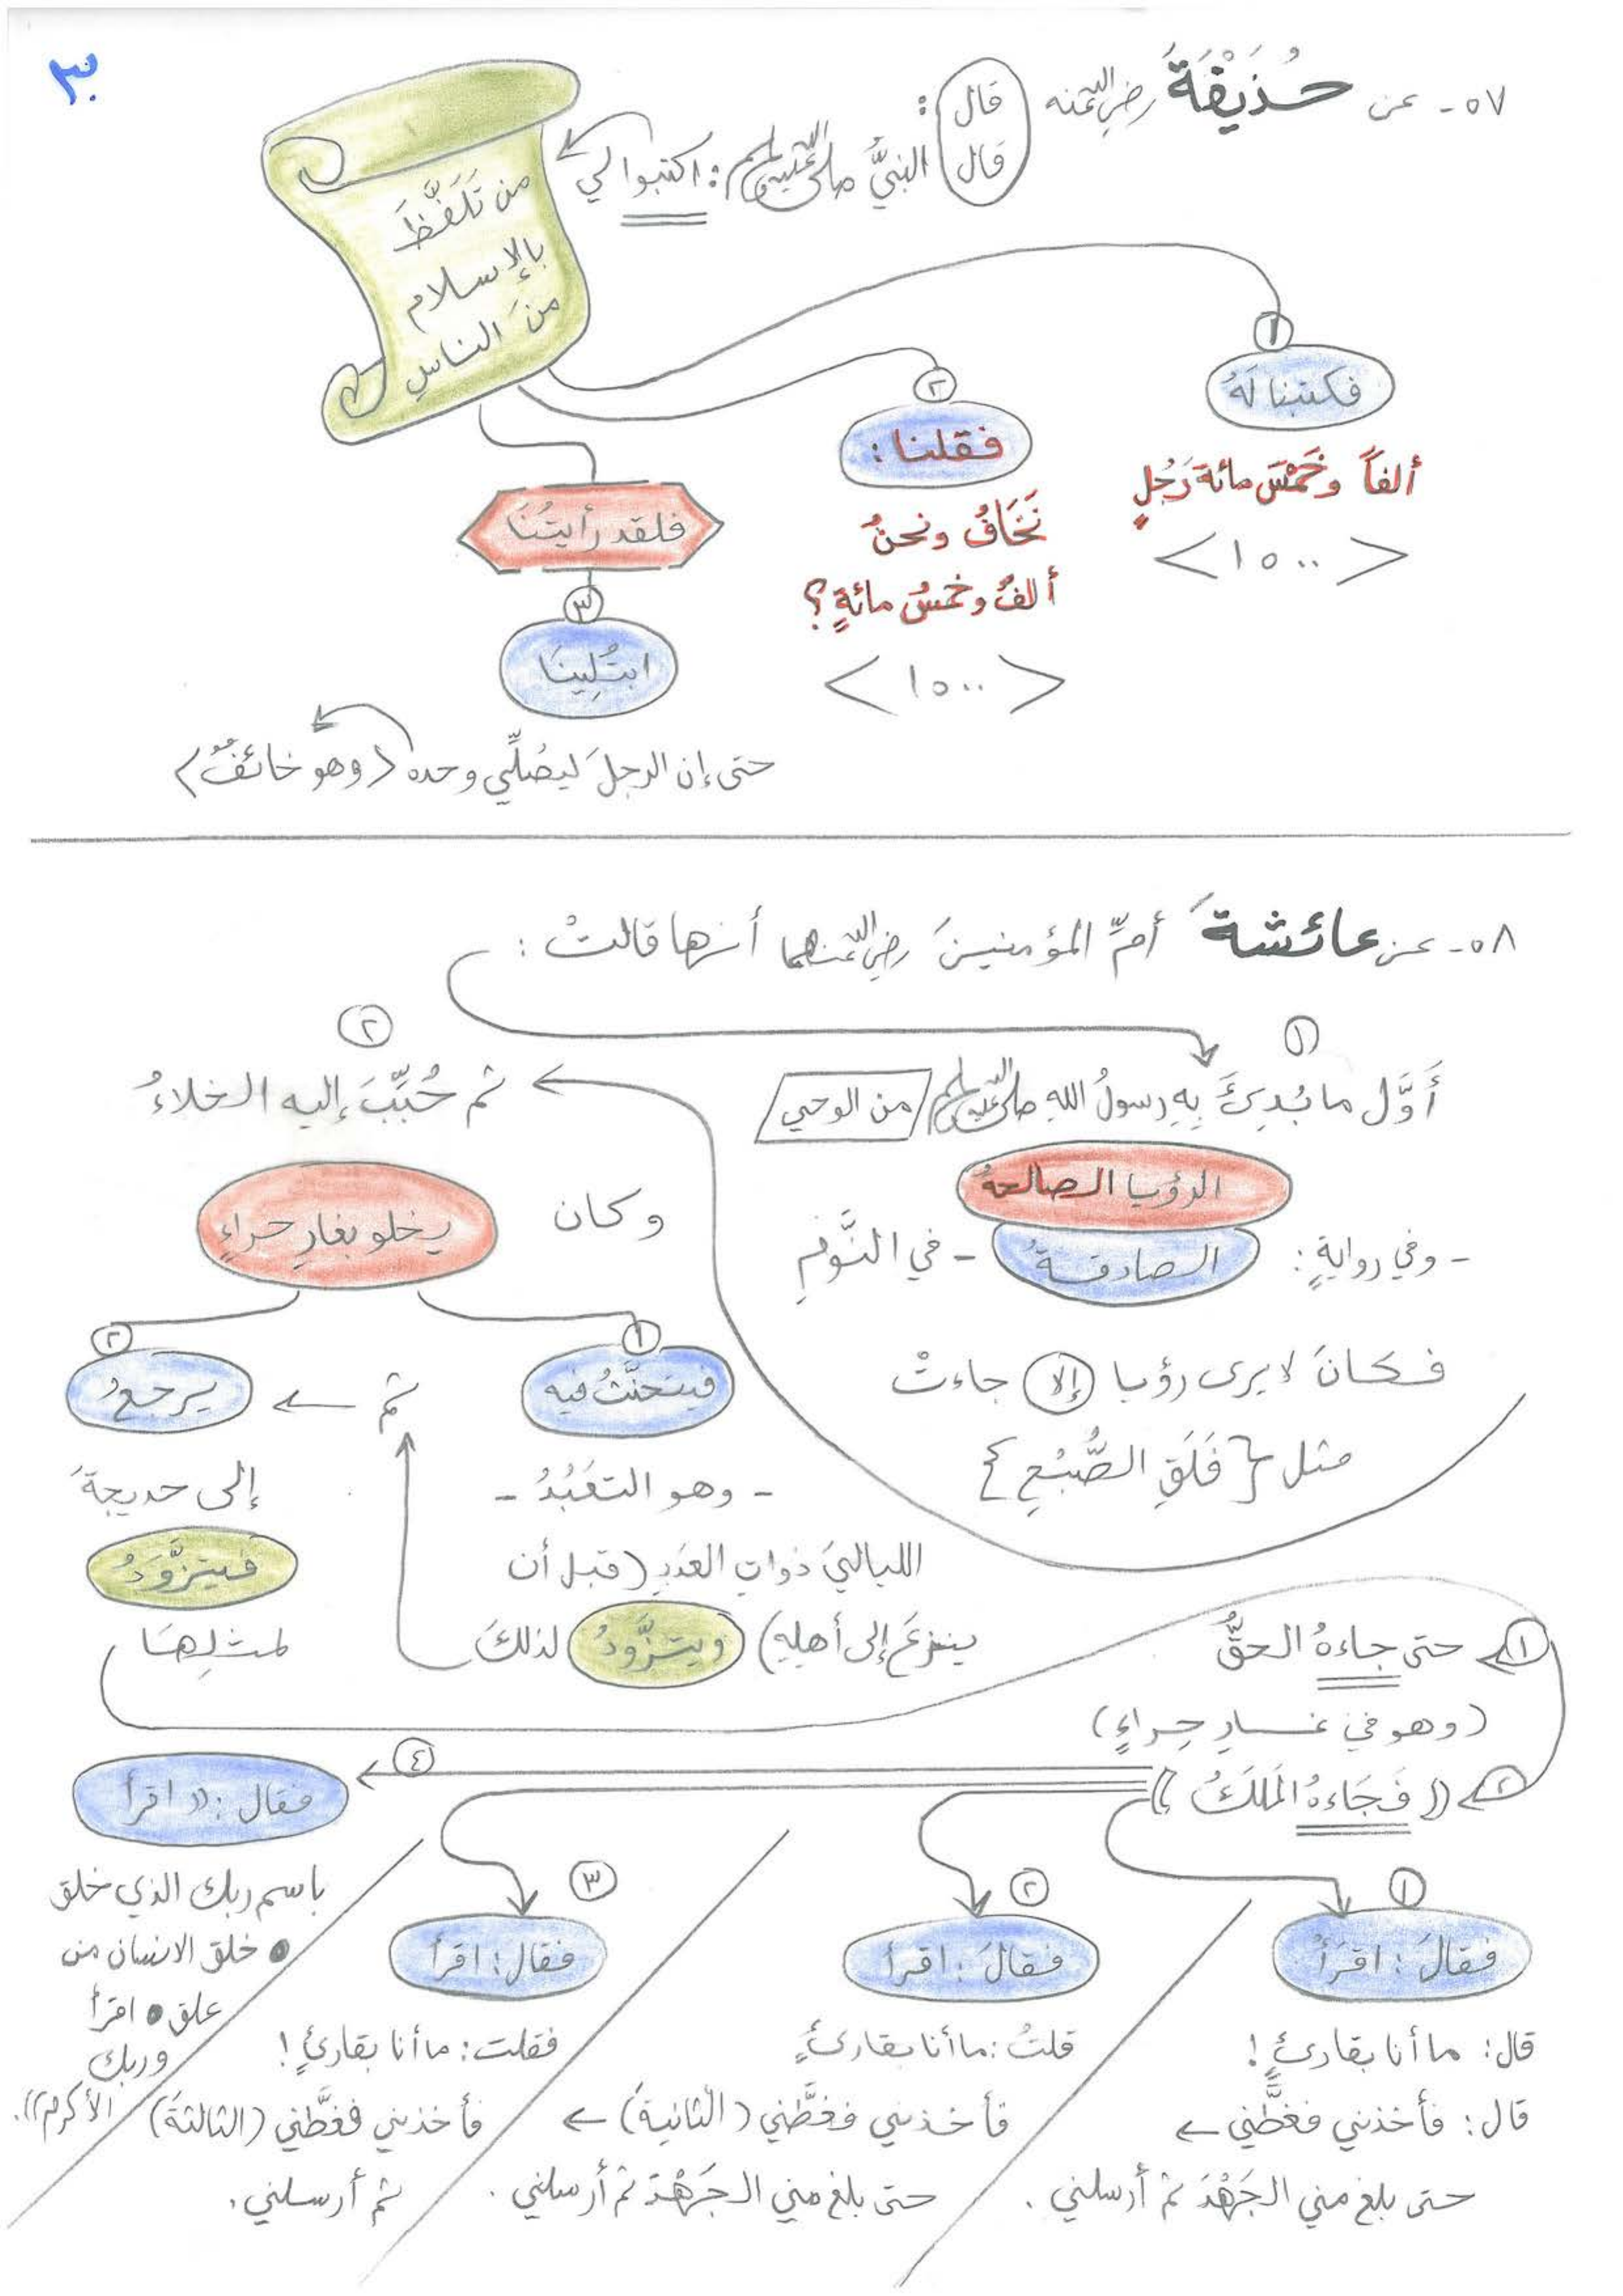 ٣٠
٥٧- عن حُذَيْفَةَ رضي الله عنه قال:
قال النبيُّ صلى الله عليه وسلم: اكتبوا لي
من تَلَفَّظَ
بالإسلام
منَ الناسِ
١
فكتبنا لَهُ
ألفاً وخَمْسَ مائة رَجُلٍ
<١٥٠٠>
٢
فقلنا:
نَخَافُ ونحنُ
ألفٌ وخمسُ مائةٍ؟
<١٥٠٠>
فلقد رأيتُنَا
٣
ابتُلِينَا
حتى إن الرجلَ ليصُلِّي وحده (وهو خائفٌ)
٥٨- عن عائشةَ أمِّ المؤمنينَ رضي الله عنهما أنها قالتْ:
١
أَوَّل ما بُدِئَ بِهِ رسولُ اللهِ صلى الله عليه وسلم من الوحي
الرؤيا الصالحةُ
- وفي روايةٍ: الصادقةُ - في النَّومِ
فكانَ لا يرى رؤيا إلا جاءتْ
مثل {فَلَقِ الصُّبْعِ}
٢
ثم حُبِّبَ إليه الخلاءُ
وكان يخلو بغارِ حراءٍ
١
فيتحنَّثُ فيه
- وهو التعَبُدُ -
الليالي ذواتِ العَدَدِ (قبل أن
ينزعَ إلى أهلِهِ) ويتزَّودُ لذلكَ
ثم
٢
يرجعُ
إلى خديجةَ
فيتزَّوَدُ
لمثلِهَا
١
حتى جاءهُ الحقُّ
(وهو في غارِ حِراءٍ)
٢
((فَجَاءهُ المَلَكُ))
١
فقالَ: اقرَأْ
قال: ما أنا بقارئٍ!
قال: فأخذني فغطَّني
حتى بلغ مني الجَهْدَ ثم أرسلني.
٢
فقالَ: اقرأ
قلتُ: ما أنا بقارئٍ
فأخذني فغطَّني (الثانيةَ)
حتى بلغ مني الجَهْدَ ثم أرسلني.
٣
فقال: اقرأ
فقلت: ما أنا بقارئٍ!
فأخذني فغطَّني (الثالثةَ)
ثم أرسلني.
٤
فقال: ((اقرأ
باسم ربك الذي خلق
● خلق الانسان من
علق ● اقرأ
وربك
الأكرم)).